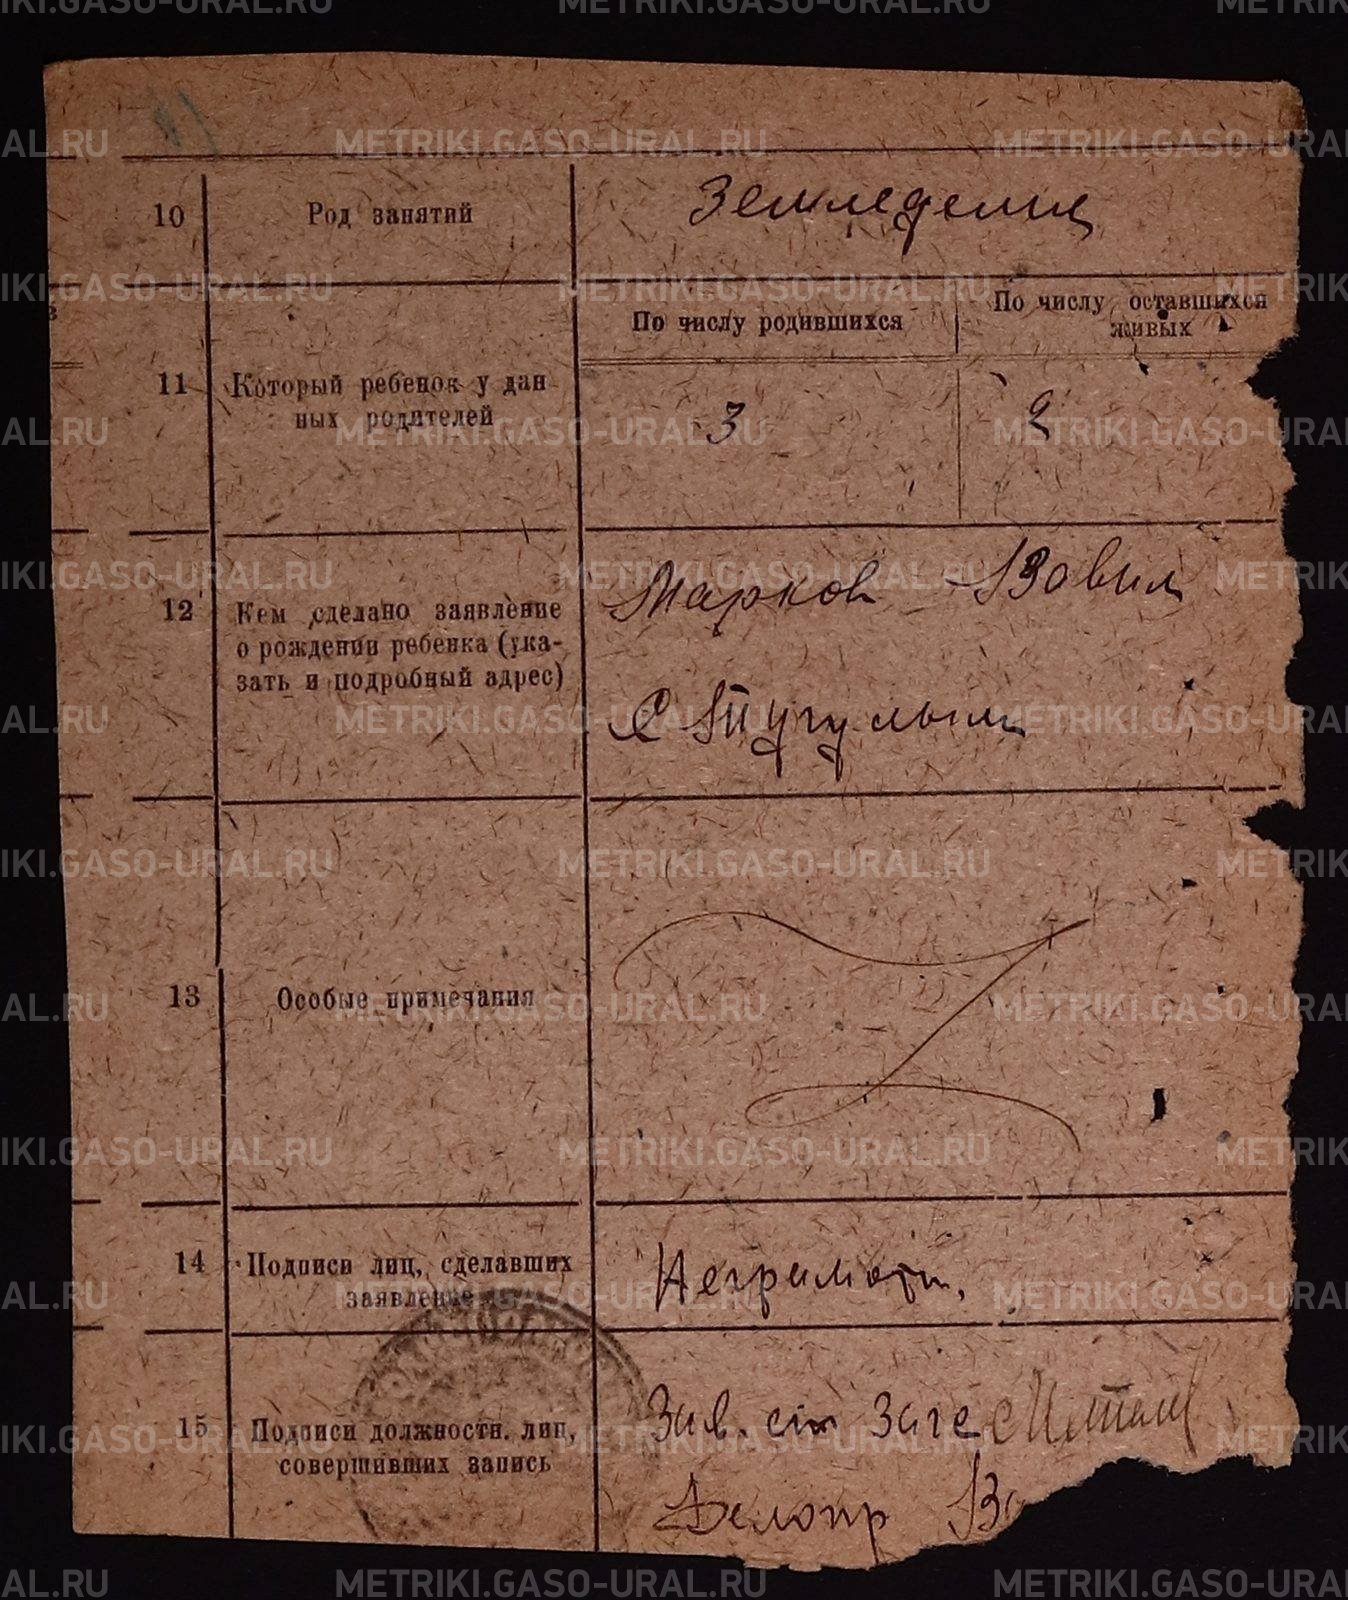 10
Род занятий
Земледелец
По числу родившихся
По числу оставшихся
живых
11
Который ребенок у дан
ных родителей
3
2
12
Кем сделано заявление
о рождении ребенка (ука-
зать и подробный адрес)
Марков Вавил
С Тугулым
13
Особые примечания
14
Подписи лиц, сделавших
заявление
Неграмотн.
15
Подписи должностн. лиц,
совершивших запись
Зав.
Делопр
METRIKI.GASO-URAL.RU